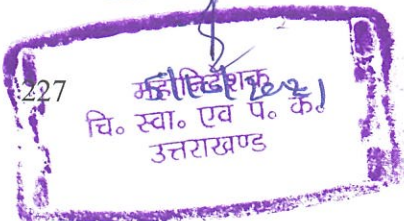 227
महानिदेशक
चि० स्वा० एवं प० क०
उत्तराखण्ड